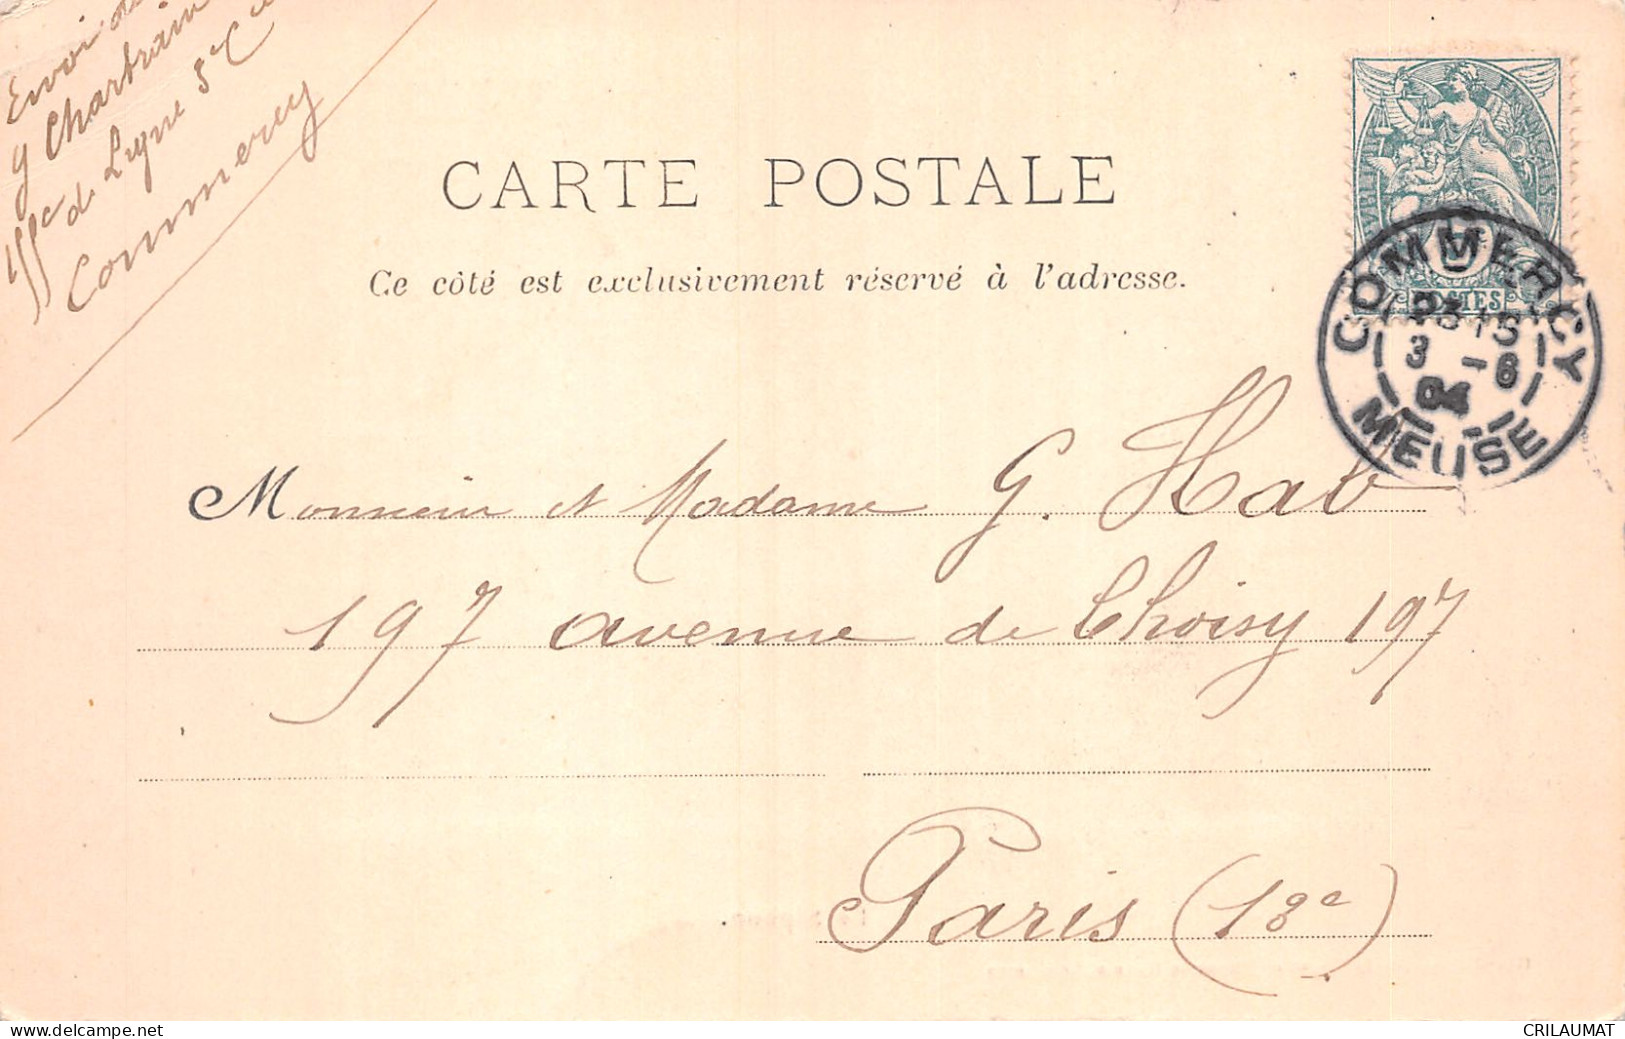 Envoi de
G Chartrain
155e de Ligne 5e Cie
Commercy
CARTE POSTALE
Ce côté est exclusivement réservé à l'adresse.
POSTES
COMMERCY
3 -6
04
MEUSE
Monsieur et Madame G. Hab
197 avenue de Choisy 197
Paris (13e)
CRILAUMAT
www.delcampe.net